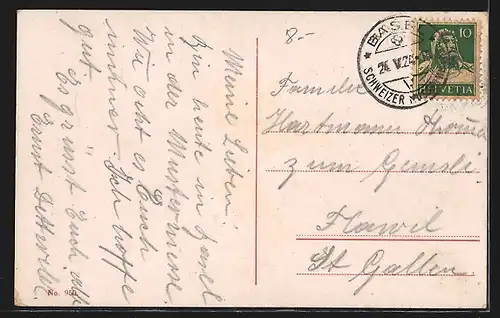 Meine Lieben!
Bin heute in Basel
in der Mustermesse.
Wie geht es Euch
immer. Ich hoffe
gut
Es grüsst Euch alle
Ernst
No. 989
8.-
BASEL
24.V.24
SCHWEIZER
10
HELVETIA
Familie
Hartmann
zum Gemsli
Flawil
St Gallen